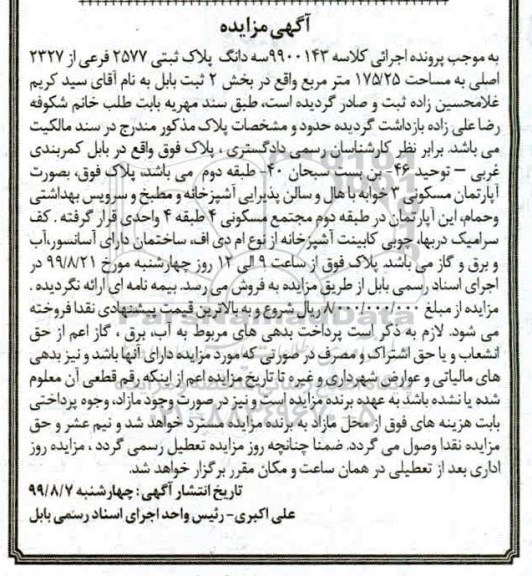 آگهی مزایده
به موجب پرونده اجرائی کلاسه ۹۹۰۰۱۴۳سه دانگ پلاک ثبتی ۲۵۷۷ فرعی از ۲۳۲۷
اصلی به مساحت ۱۷۵/۲۵ متر مربع واقع در بخش ۲ ثبت بابل به نام آقای سید کریم
غلامحسین زاده ثبت و صادر گردیده است، طبق سند مهریه بابت طلب خانم شکوفه
رضا علی زاده بازداشت گردیده حدود و مشخصات پلاک مذکور مندرج در سند مالکیت
می باشد. برابر نظر کارشناسان رسمی دادگستری ، پلاک فوق واقع در بابل کمربندی
غربی – توحید ۴۶- بن بست سبحان ۴۰- طبقه دوم می باشد، پلاک فوق، بصورت
آپارتمان مسکونی ۳ خوابه با هال و سالن پذیرایی آشپزخانه و مطبخ و سرویس بهداشتی
وحمام، این آپارتمان در طبقه دوم مجتمع مسکونی ۴ طبقه ۴ واحدی قرار گرفته . کف
سرامیک دربها، چوبی کابینت آشپزخانه از نوع ام دی اف، ساختمان دارای آسانسور،آب
و برق و گاز می باشد. پلاک فوق از ساعت ۹ الی ۱۲ روز چهارشنبه مورخ ۹۹/۸/۲۱ در
اجرای اسناد رسمی بابل از طریق مزایده به فروش می رسد. بیمه نامه ای ارائه نگردیده .
مزایده از مبلغ ۸/۰۰۰/۰۰۰/۰۰۰ ریال شروع و به بالاترین قیمت پیشنهادی نقدا فروخته
می شود. لازم به ذکر است پرداخت بدهی های مربوط به آب، برق ، گاز اعم از حق
انشعاب و یا حق اشتراک و مصرف در صورتی که مورد مزایده دارای آنها باشد و نیز بدهی
های مالیاتی و عوارض شهرداری و غیره تا تاریخ مزایده اعم از اینکه رقم قطعی آن معلوم
شده یا نشده باشد به عهده برنده مزایده است و نیز در صورت وجود مازاد، وجوه پرداختی
بابت هزینه های فوق از محل مازاد به برنده مزایده مسترد خواهد شد و نیم عشر و حق
مزایده نقدا وصول می گردد. ضمنا چنانچه روز مزایده تعطیل رسمی گردد ، مزایده روز
اداری بعد از تعطیلی در همان ساعت و مکان مقرر برگزار خواهد شد.
تاریخ انتشار آگهی: چهارشنبه ۹۹/۸/۷
علی اکبری- رئیس واحد اجرای اسناد رسمی بابل